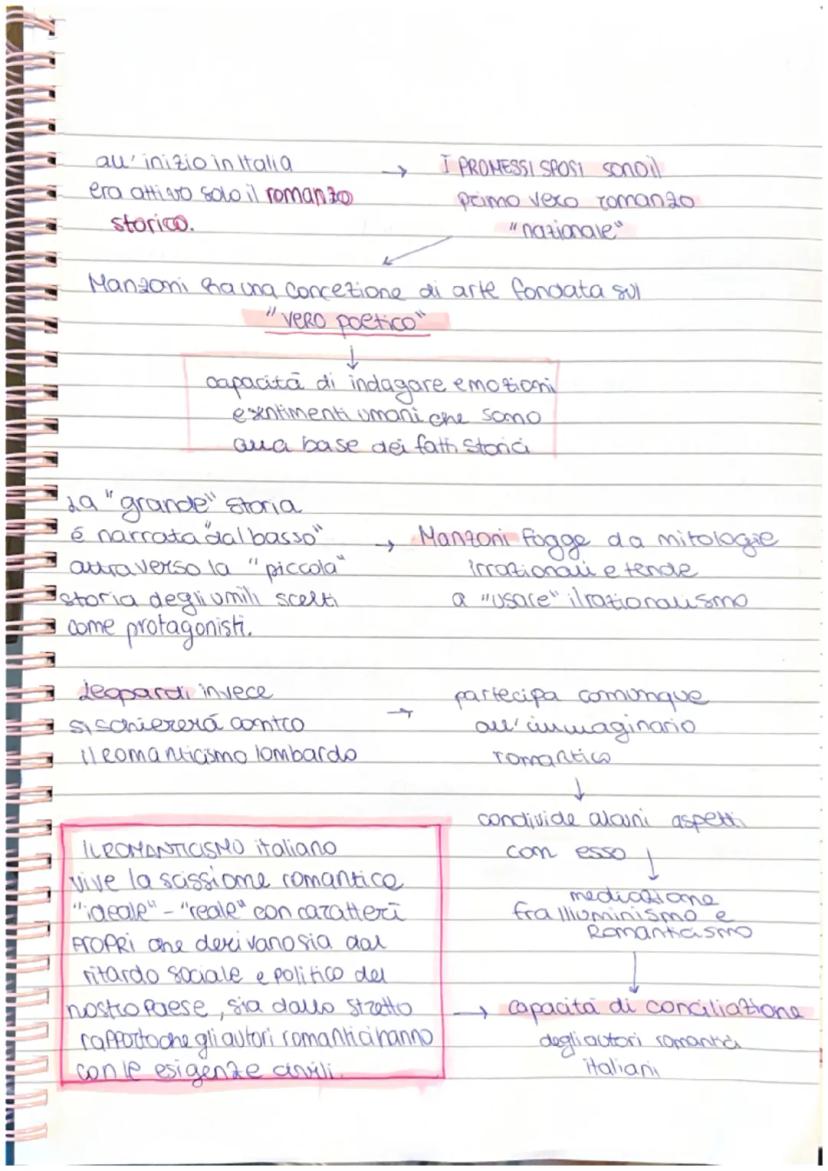 all' inizio in Italia
era attivo solo il romanzo
storico.
→ I PROMESSI SPOSI sono il
primo vero romanzo
"nazionale"
Manzoni ha una concezione di arte fondata sul
"VERO poetico"
↓
capacitá di indagare emozioni
e sentimenti umani che sono
alla base dei fatti storici
La "grande" storia
é narrata "dal basso"
attraverso la "piccola"
storia degli umili scelti
come protagonisti.
→ Manzoni fogge da mitologie
irrazionali e tende
a "usare" il razionalismo
Leopardi invece
si schiererá contro
il romanticismo lombardo
→ partecipa comunque
all' immaginario
romantico
↓
condivide alcuni aspetti
con esso ↓
mediazione
fra Illuminismo e
Romanticismo
↓
IL ROMANTICISMO italiano
vive la scissione romantica
"ideale" - "reale" con caratteri
PROPRI che derivano sia dal
ritardo sociale e politico del
nostro paese, sia dallo stretto
rapporto che gli autori romantici hanno
con le esigenze civili.
→ capacitá di conciliazione
degli autori romantici
italiani